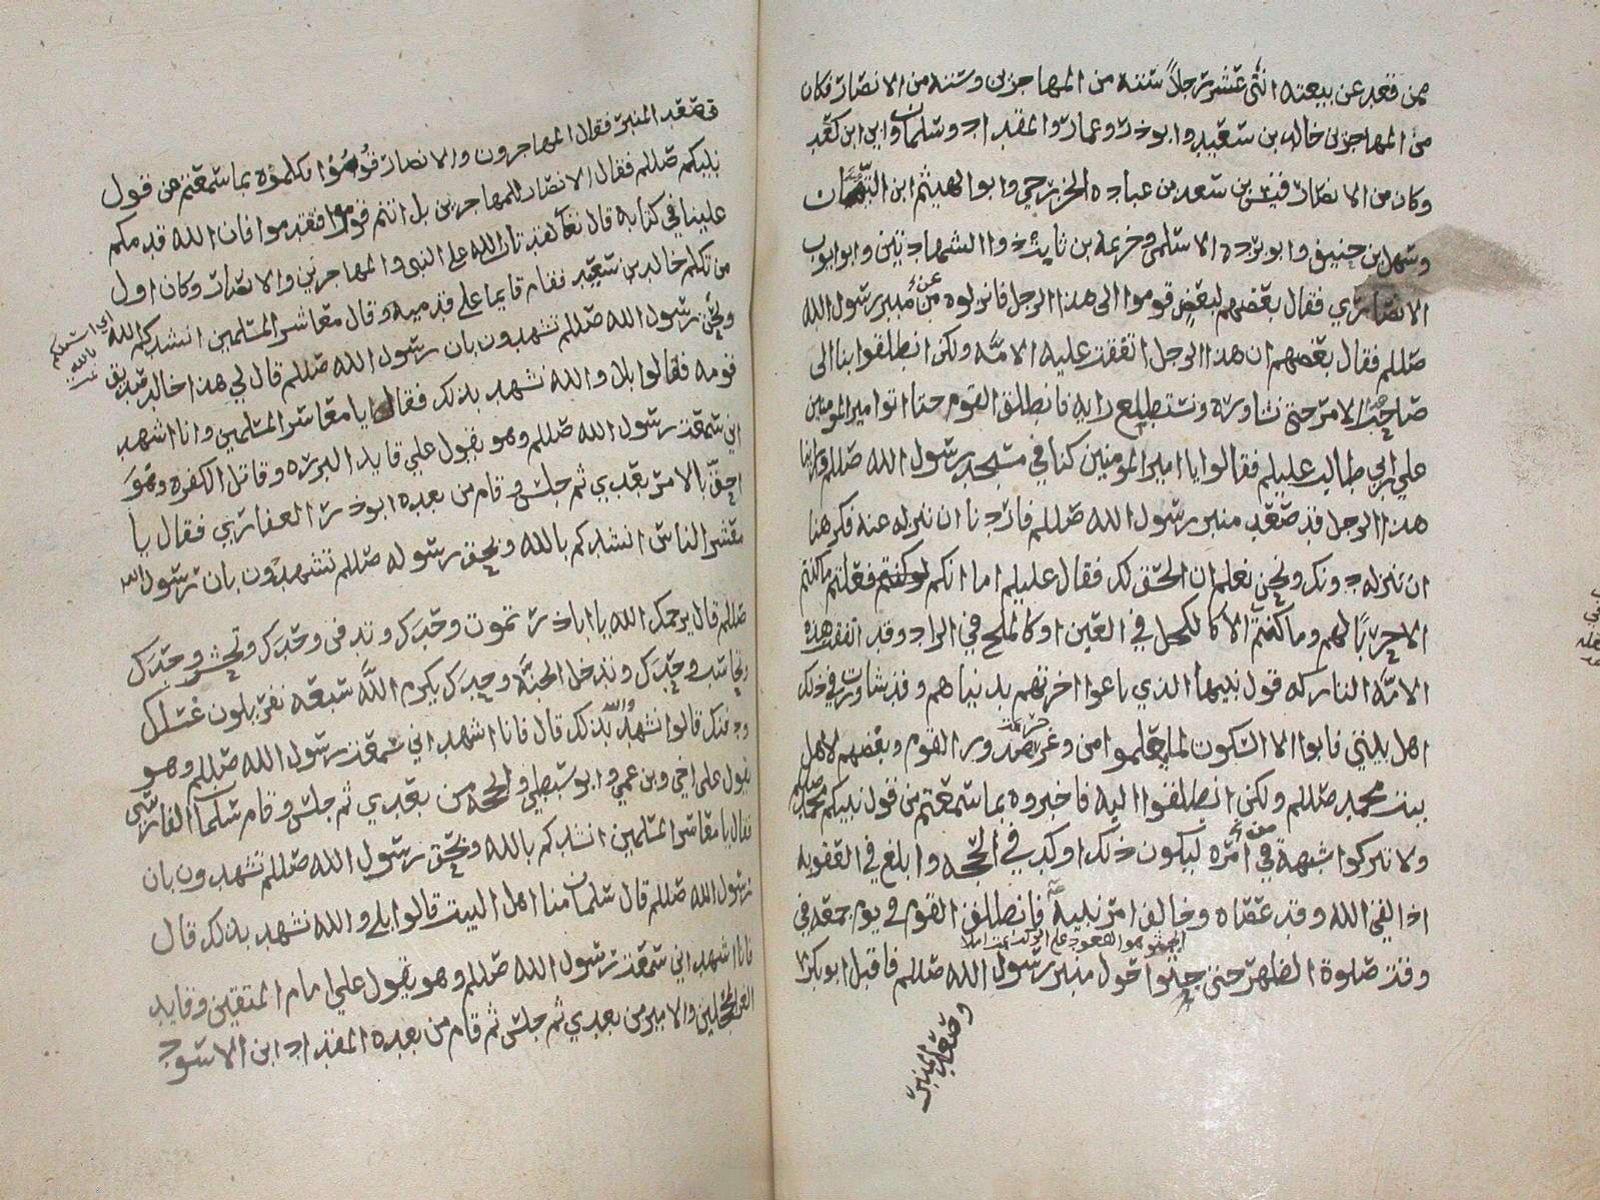 ممن قعد عن بيعته اثنى عشر رجلاً ستة من المهاجرين وستة من الانصار فكان
من المهاجرين خالد بن سعيد وابوذر وعمار والمقداد وسلمان وابي ابن كعب
وكان من الانصار قيس بن سعد بن عباده الخزرجي وابو الهيثم ابن التيهان
وسهل بن حنيف وابو برده الاسلمى وخزيمة بن ثابت ذو الشهادتين وابو ايوب
الانصاري فقال بعضهم لبعض قوموا الى هذا الرجل فانزلوه عن منبر رسول الله
صللم فقال بعضهم ان هذا الرجل اتفقت عليه الامه ولكن انطلقوا بنا الى
صاحب هذا الامر حتى نشاوره ونستطلع رايه فانطلق القوم حتا اتوا امير المومنين
علي ابن ابي طالب عليلم فقالوا يا امير المومنين كنا في مسجد رسول الله صللم فراينا
هذا الرجل قد صعد منبر رسول الله صللم فاردنا ان ننزله عنه فكرهنا
ان ننزله دونك ونحن نعلم ان الحق لك فقال عليلم اما انكم لو كنتم فعلتم ما كنتم
الا حربًا لهم وما كنتم الا كالكحل في العين او كالملح في الزاد وقد اتفقت هذه
الامه التاركه قول نبيها الذي باعوا اخرتهم بدنياهم وقد شاورت في ذلك
اهل بيتي فابوا الا السكون لما يعلموا من وغر صدور القوم وبغضهم لاهل
بيت محمد صللم ولكن انطلقوا اليه فاخبروه بما سمعتم من قول نبيكم محمد صللم
ولا تتركوا شبهة في امره ليكون ذلك اوكد في الحجه وابلغ في العقوبه
اذا لقي الله وقد عصاه وخالف امر نبيه فانطلق القوم في يوم جمعه في
وقت صلوة الظهر حتى جثوا حول منبر رسول الله صللم فاقبل ابو بكر
وصعد المنبر
فصعد المنبر فقال المهاجرون والانصار قوموا كلموه بما سمعتم من قول
نبيكم صللم فقال الانصار للمهاجرين بل انتم قوموا فقدموا فان الله قدمكم
علينا في كتابه قال تعا لقد تاب الله على النبي والمهاجرين والانصار وكان اول
من تكلم خالد بن سعيد فقام قايما على قدميه وقال معاشر المسلمين انشدكم الله
اي اسئلكم بالله
وبحق رسول الله صللم تشهدون بان رسول الله صللم قال لي هذا خالد صديق
قومه فقالوا بلا والله نشهد بذلك فقال يا معاشر المسلمين وانا اشهد
اني سمعت رسول الله صللم وهو يقول علي قايد البرره وقاتل الكفره وهو
احق بالامر بعدي ثم جلس وقام من بعده ابوذر الغفاري فقال يا
معشر الناس انشدكم بالله وبحق رسوله صللم تشهدون بان رسول الله
صللم قال يرحمك الله يا اباذر تموت وحدك وتدفن وحدك وتحشر وحدك
وتحاسب وحدك وتدخل الجنة وحدك يكرم الله سبعه نفر يلون غسلك
ودفنك قالوا نشهد والله بذلك قال فانا اشهد اني سمعت رسول الله صللم وهو
يقول علي اخي وبن عمي وابو سبطي والحجه من بعدي ثم جلس وقام سلمان الفارسي
فقال يا معاشر المسلمين انشدكم بالله وبحق رسول الله صللم تشهدون بان
رسول الله صللم قال سلمان منا اهل البيت قالوا بلى والله نشهد بذلك قال
فانا اشهد اني سمعت رسول الله صللم وهو يقول علي امام المتقين وقايد
الغر المحجلين والامير من بعدي ثم جلس ثم قام من بعده المقداد ابن الاسود